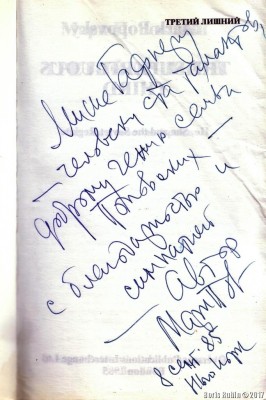 ТРЕТИЙ ЛИШНИЙ
Мише
— человеку ста талантов,
доброму гению семьи
Поповских —
с благодарностью и
симпатией
— Автор
8 сент 87
Нью Йорк
Boris Rubin © 2017